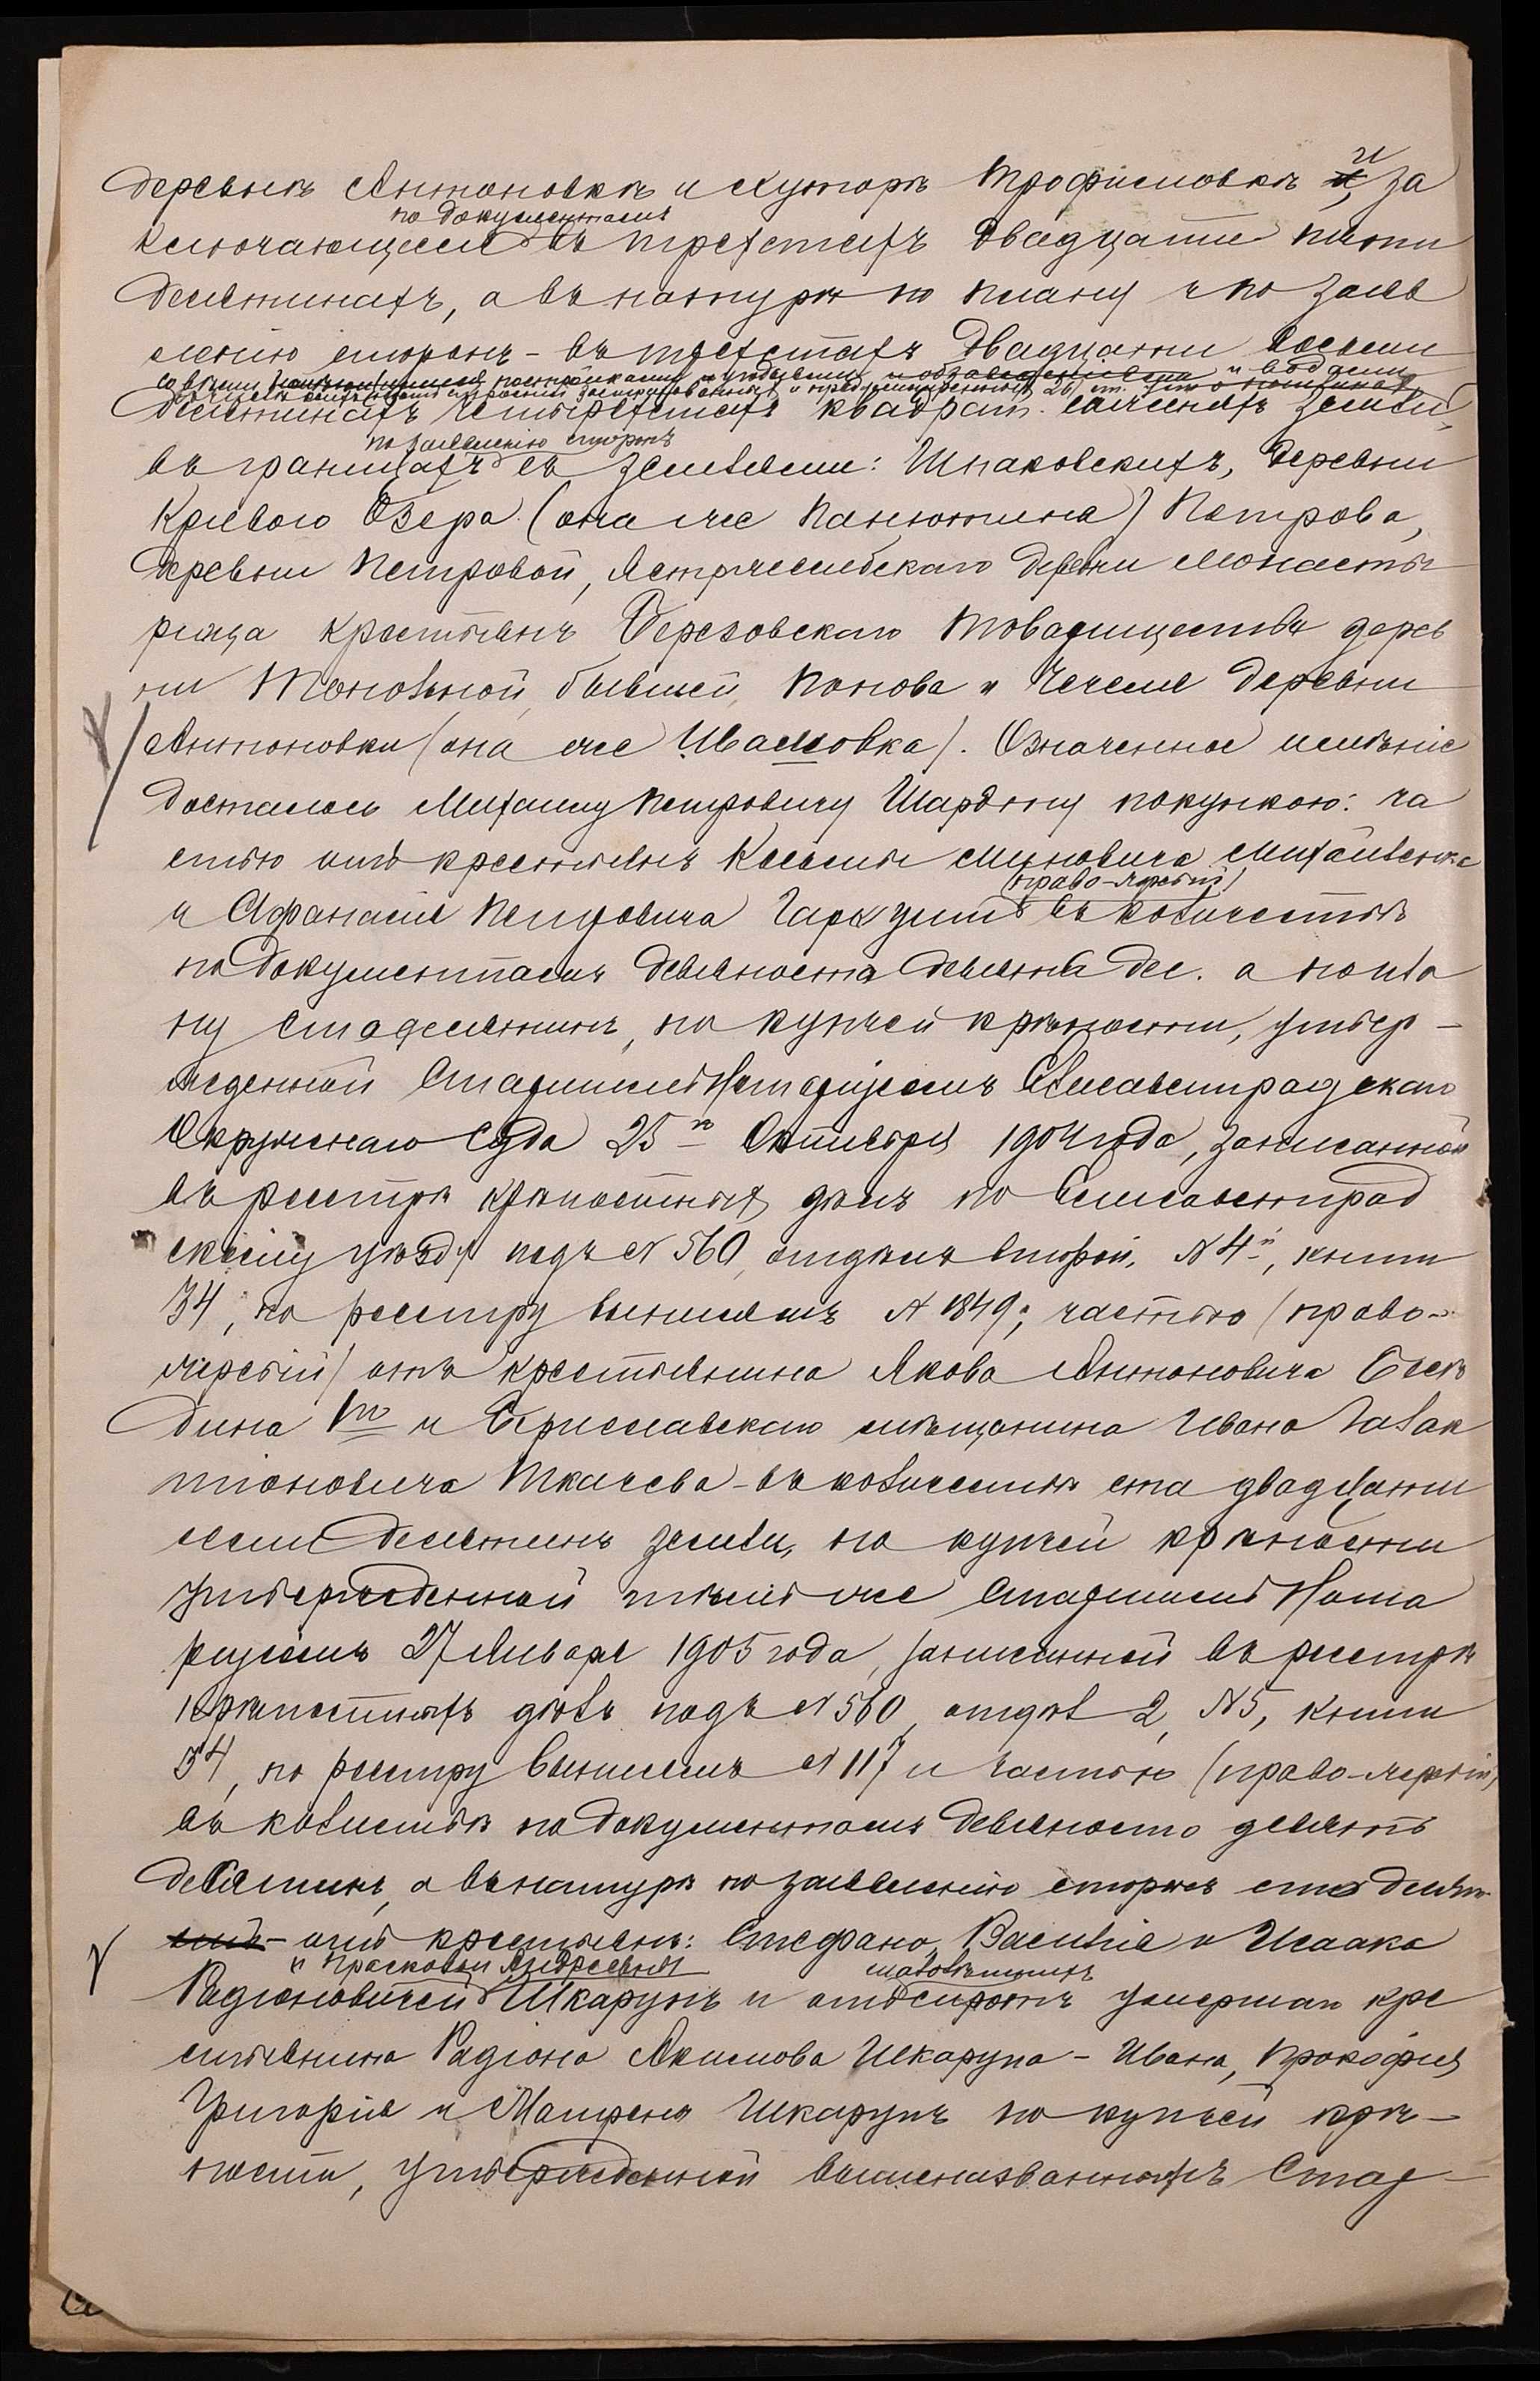 деревнѣ Антоновкѣ и хуторѣ Трофимовкѣ и за
по документамъ
ключающееся въ трехстахъ двадцати пяти
десятинахъ, а въ натурѣ по плану и по заяв
ленію сторонъ - въ трехстахъ двадцати восьми
со всѣми постройками и вообще
десятинахъ четырехстахъ квадрат. саженяхъ земли,
по заявленію сторонъ
въ границахъ съ землями: Шпаковскихъ, деревни
Кривого Озера (она же Панютина) Петрова,
деревни Петровой, Ястржембскаго деревни Монасты
рища крестьянъ Березовскаго Товарищества дерев
ни бывшей Попова и деревни
Антоновки (она же Ивашовка). Означенное имѣніе
досталось Михаилу Петровичу Шардту покупкою: ча
стью отъ крестьянъ Косьмы Миновича Михайленка
(право-
и Афанасія Петровича Гаркуши въ количествѣ
по документамъ девяносто девять дес. а по пла
ну сто десятинъ, по купчей крѣпости, утвер-
жденной Старшимъ Нотаріусомъ Елисаветградскаго
Окружнаго Суда 25го Октября 1904 года, записанной
въ реестрѣ крѣпостныхъ дѣлъ по Елисаветград
скому уѣзду подъ № 560, отдѣлъ второй, № 4й, книги
34, по реестру выписямъ № 1849; частью (право-
) отъ крестьянина Якова Антоновича
дина 1го и Бериславскаго мѣщанина Ивана Галак
тіоновича Ткачева - въ количествѣ ста двадцати
семи десятинъ земли, по купчей крѣпости
утвержденной тѣмъ же Старшимъ Нота
ріусомъ 27 Января 1905 года, записанной въ реестрѣ
крѣпостныхъ дѣлъ подъ № 560, отдѣл 2, № 5, книги
34, по реестру выписямъ № 117 и частью (право-
въ количествѣ по документамъ девяносто девять
десятинъ, а въ натурѣ по заявленію сторонъ сто десяти
отъ крестьянъ: Стефана, Василія и Исаака
и Прасковьи Андреевны малолѣтнихъ
Радіоновичей Шкарупъ и отъ сиротъ умершаго кре
стьянина Радіона Акимова Шкарупа - Ивана, Прокофія,
Григорія и Матрены Шкарупъ по купчей крѣ-
пости, утвержденной вышеназваннымъ Стар-